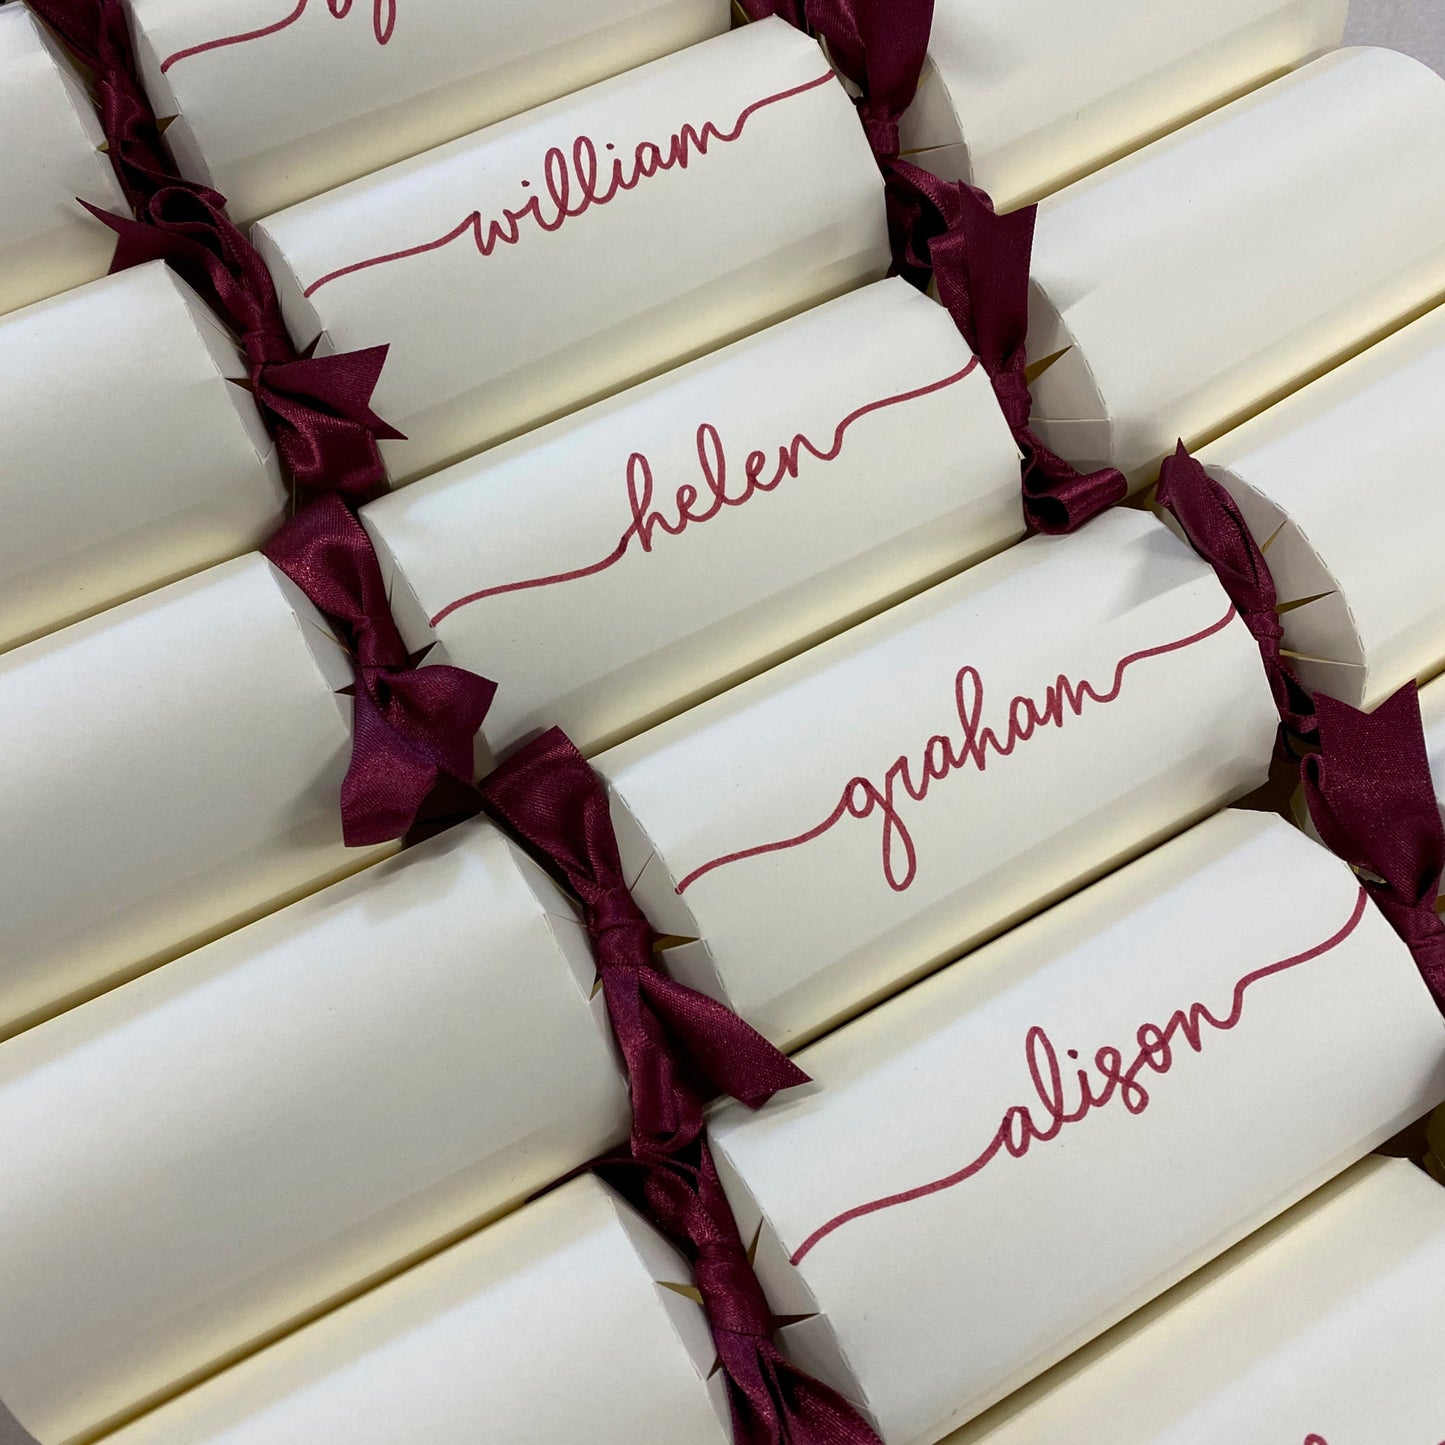 william
helen
graham
alison